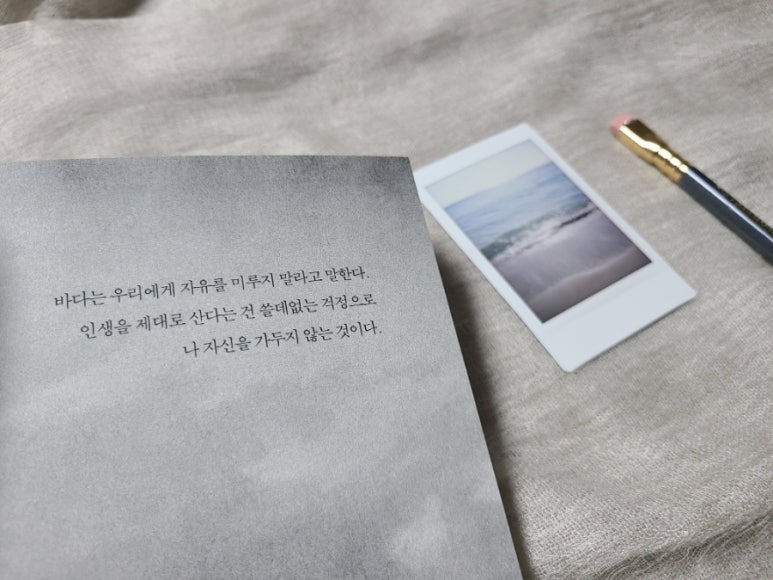 바다는 우리에게 자유를 미루지 말라고 말한다.
인생을 제대로 산다는 건 쓸데없는 걱정으로
나 자신을 가두지 않는 것이다.